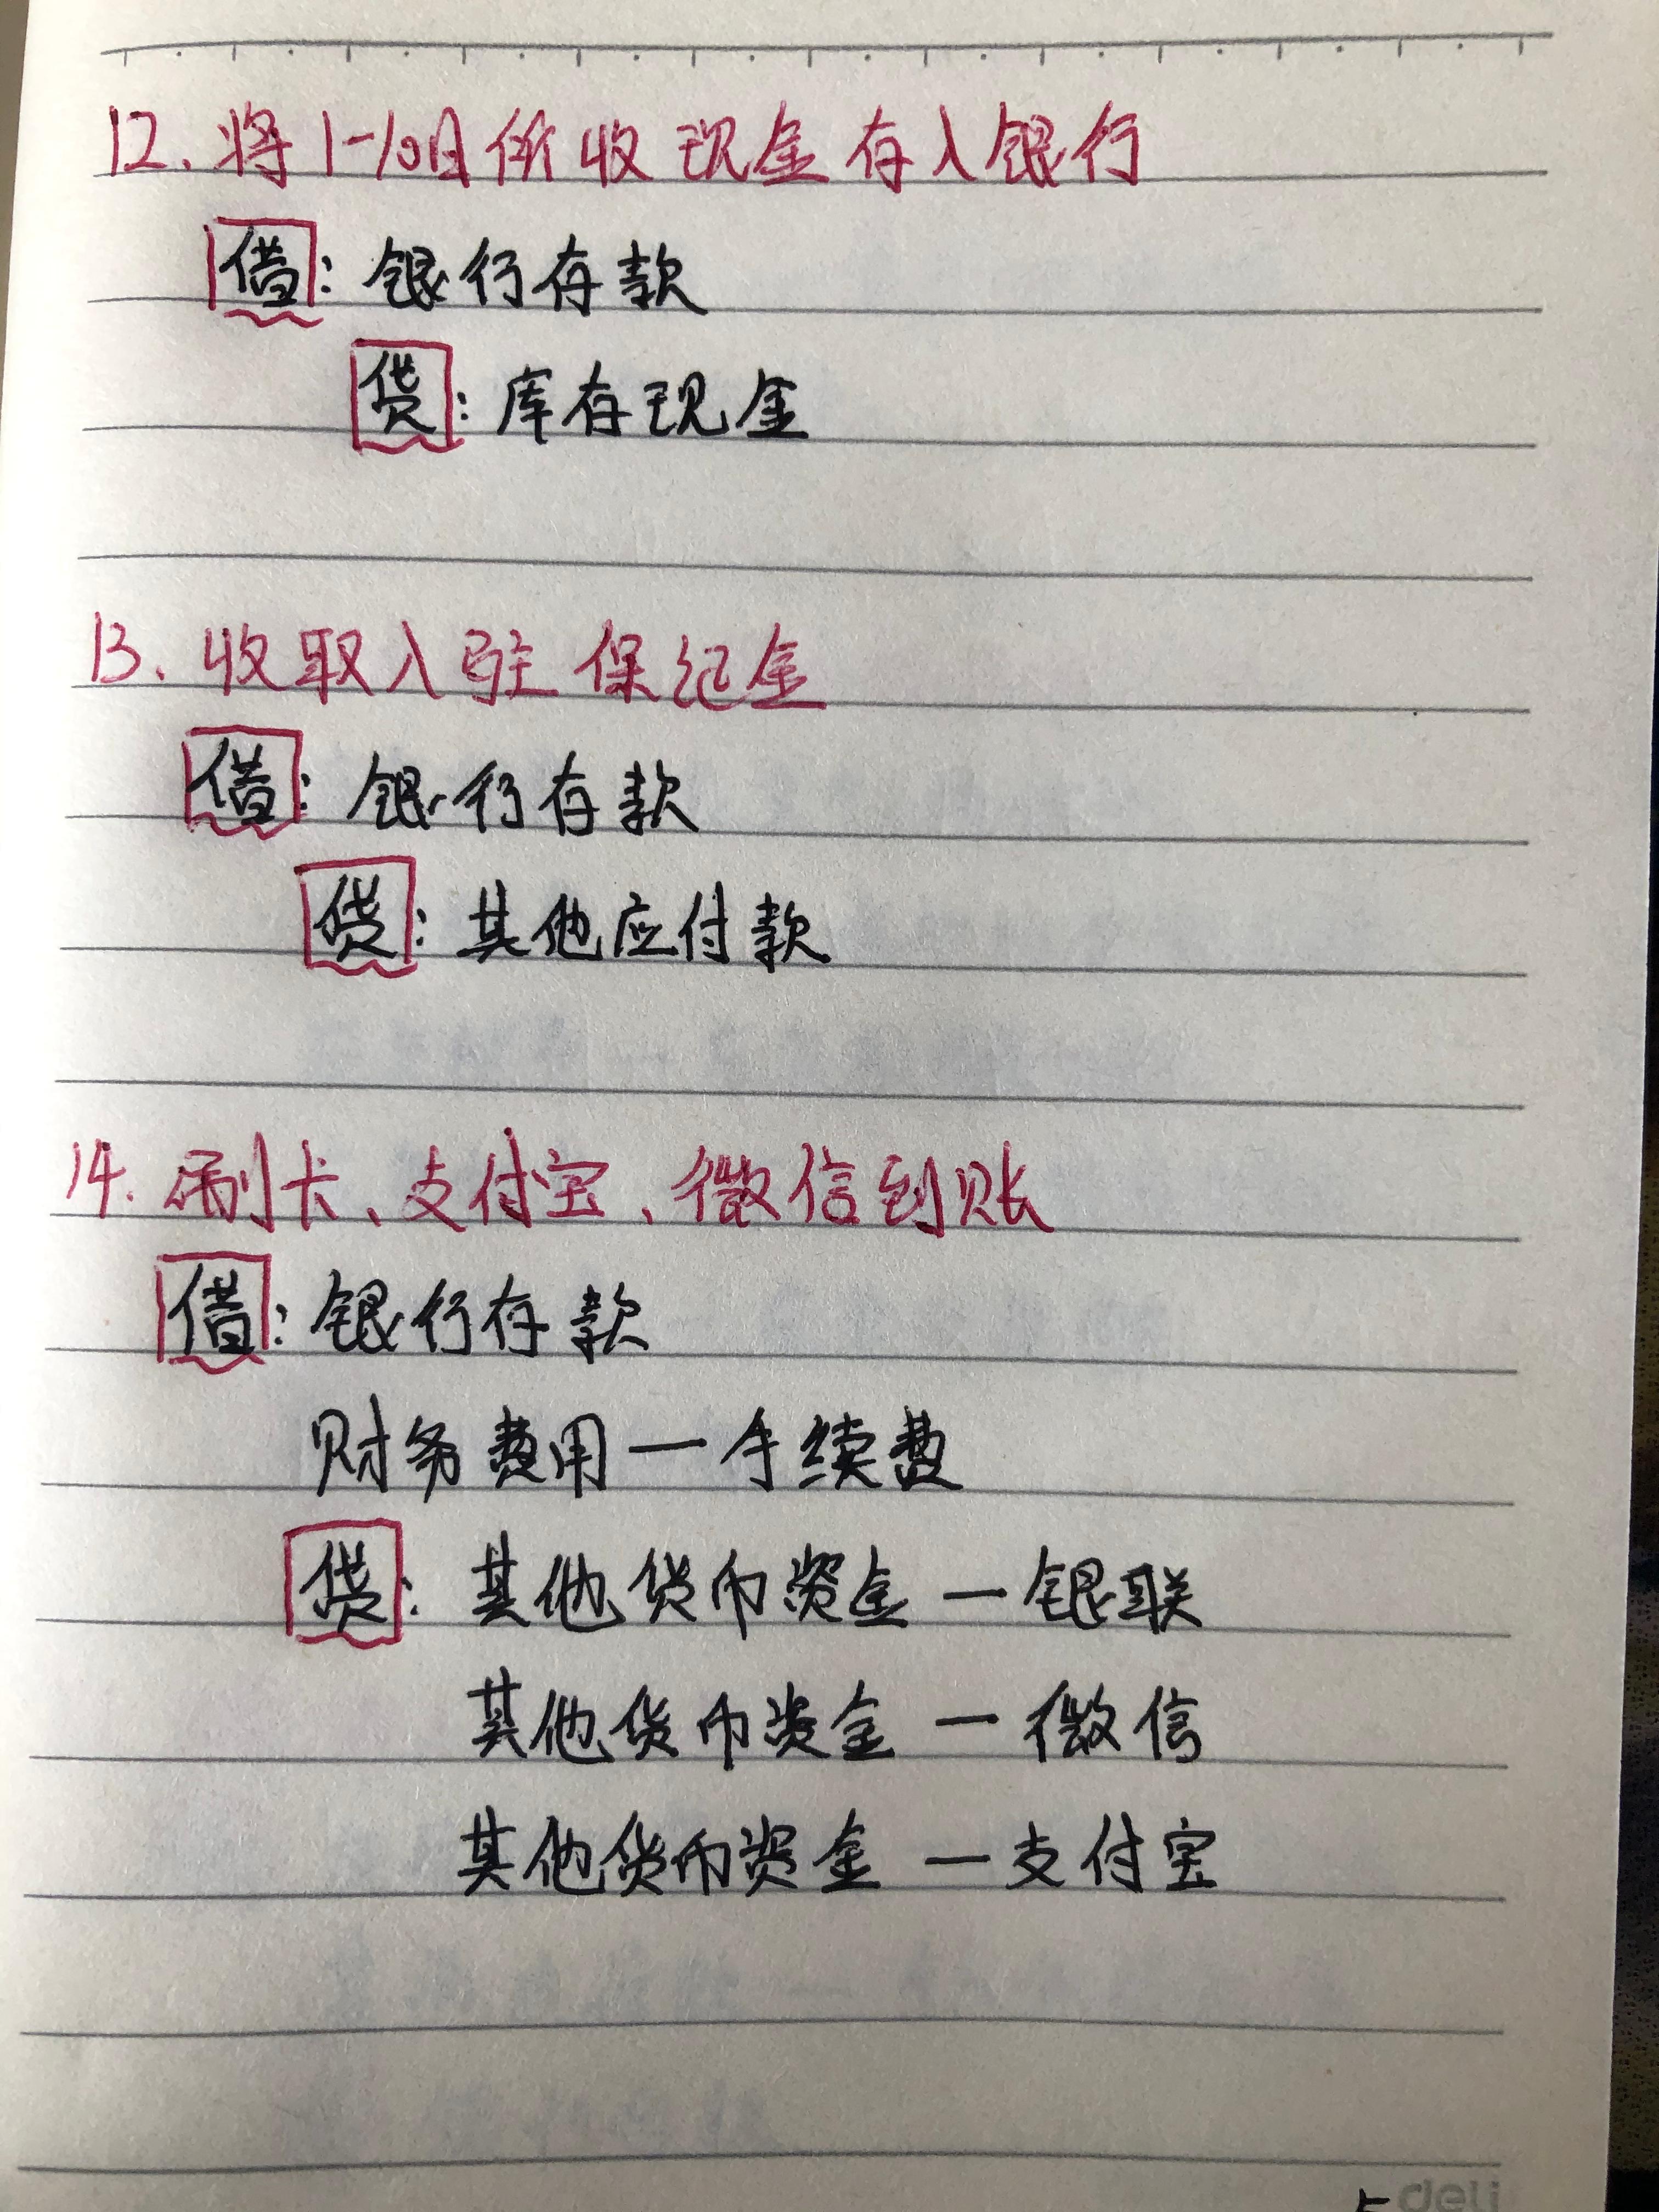 12、将1-10日所收现金存入银行
借：银行存款
贷：库存现金
13、收取入驻保记金
借：银行存款
贷：其他应付款
14.刷卡、支付宝、微信到账
借：银行存款
财务费用—手续费
贷：其他货币资金—银联
其他货币资金—微信
其他货币资金—支付宝
deli